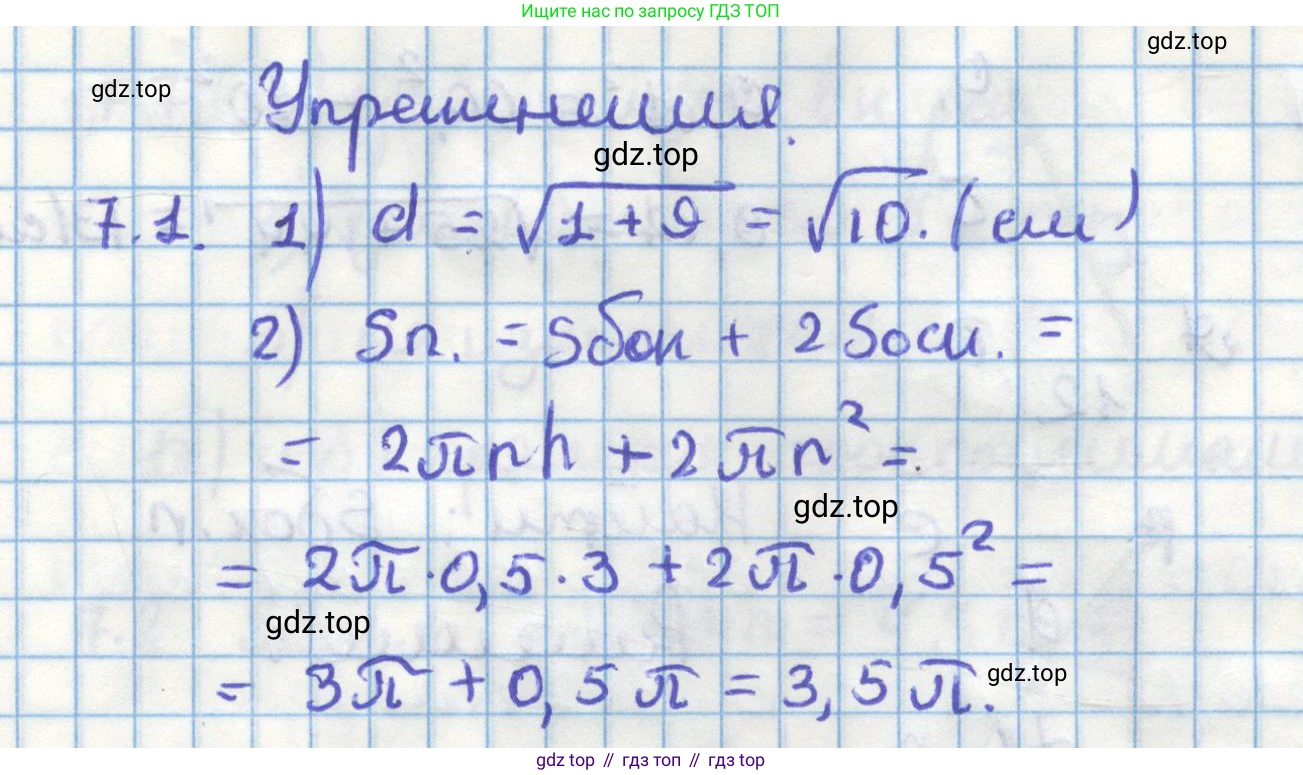 Ищите нас по запросу ГДЗ ТОП
gdz.top
gdz.top
Упражнения.
gdz.top
7.1. 1) d = √(1 + 9) = √10. (см)
2) Sп. = Sбок + 2 Sосн. =
= 2πrh + 2πr² =
gdz.top
= 2π·0,5·3 + 2π·0,5² =
gdz.top
= 3π + 0,5π = 3,5π.
gdz.top
gdz top // гдз топ // gdz.top